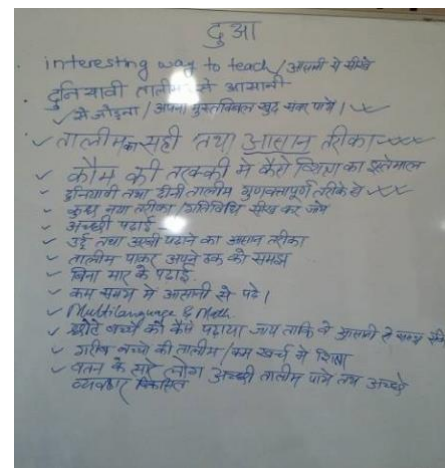 दुआ
interesting way to teach / आसानी से सीखे
दुनियावी तालीम से आसानी
से जोड़ना / अपना मुस्तकबिल खुद पाये।
तालीम का सही तथा आसान तरीका
कौम की तरक्की में कैसे शिक्षा का इस्तेमाल
दुनियावी तथा दीनी तालीम गुणवत्तापूर्ण तरीके से
कुछ नया तरीका / गतिविधि सीख कर जाये
अच्छी पढाई
उर्दू तथा अरबी पढाने का आसान तरीका
तालीम पाकर अपने हक को समझे
बिना मार के पढाई
कम समय में आसानी से पढे।
Multilanguage & Math.
छोटे बच्चे को कैसे पढाया जाय ताकि वे आसानी से समझ सके
गरीब बच्चो की तालीम / कम खर्च में शिक्षा
वतन के सारे लोग अच्छी तालीम पाये तथा अच्छे
व्यवहार विकसित